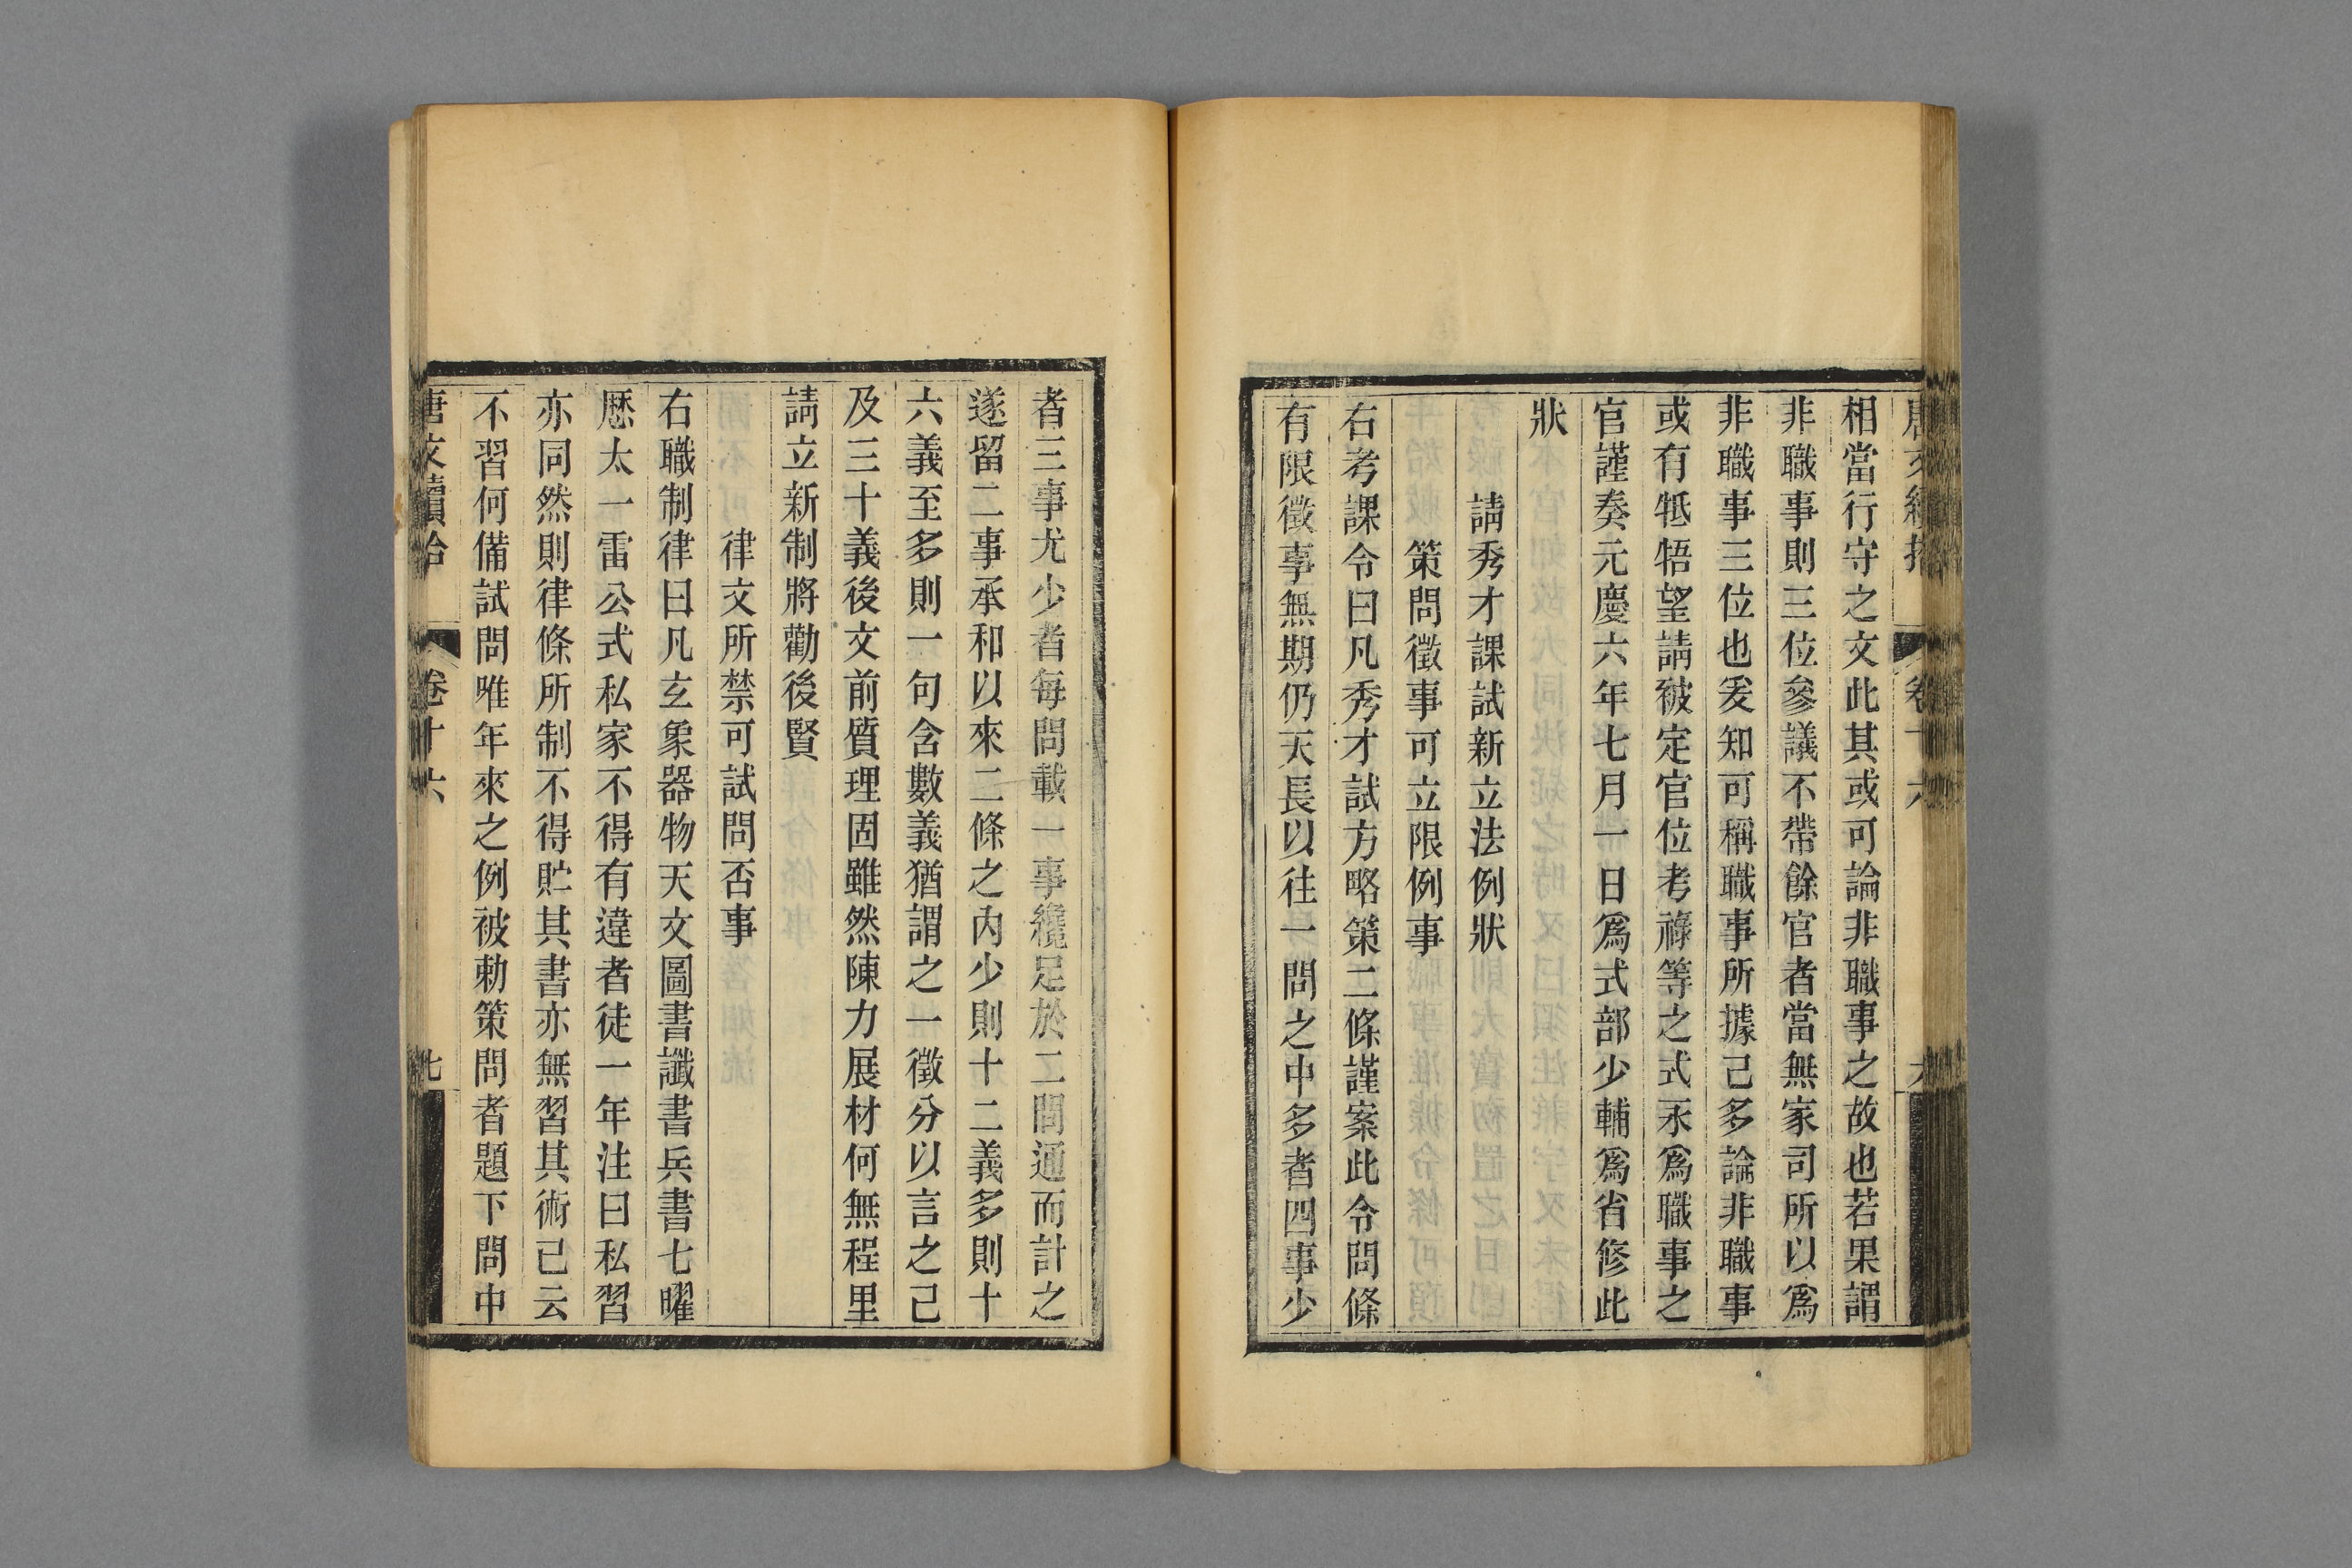 相當行守之文此其或可論非職事之故也若果謂
非職事則三位參議不帶餘官者當無家司所以爲
非職事三位也爰知可稱職事所據己多論非職事
或有牴牾望請被定官位考祿等之式永爲職事之
官謹奏元慶六年七月一日爲式部少輔爲省修此
狀
請秀才課試新立法例狀
策問徵事可立限例事
右考課令曰凡秀才試方略策二條謹案此令問條
有限徵事無期仍天長以往一問之中多者四事少
者三事尤少者每問載一事纔足於二問通而計之
遂留二事承和以來二條之內少則十二義多則十
六義至多則一句含數義猶謂之一徵分以言之己
及三十義後文前質理固雖然陳力展材何無程里
請立新制將勸後賢
律文所禁可試問否事
右職制律曰凡玄象器物天文圖書讖書兵書七曜
厯太一雷公式私家不得有違者徒一年注曰私習
亦同然則律條所制不得貯其書亦無習其術已云
不習何備試問唯年來之例被勅策問者題下問中
唐文續拾 卷十六 七